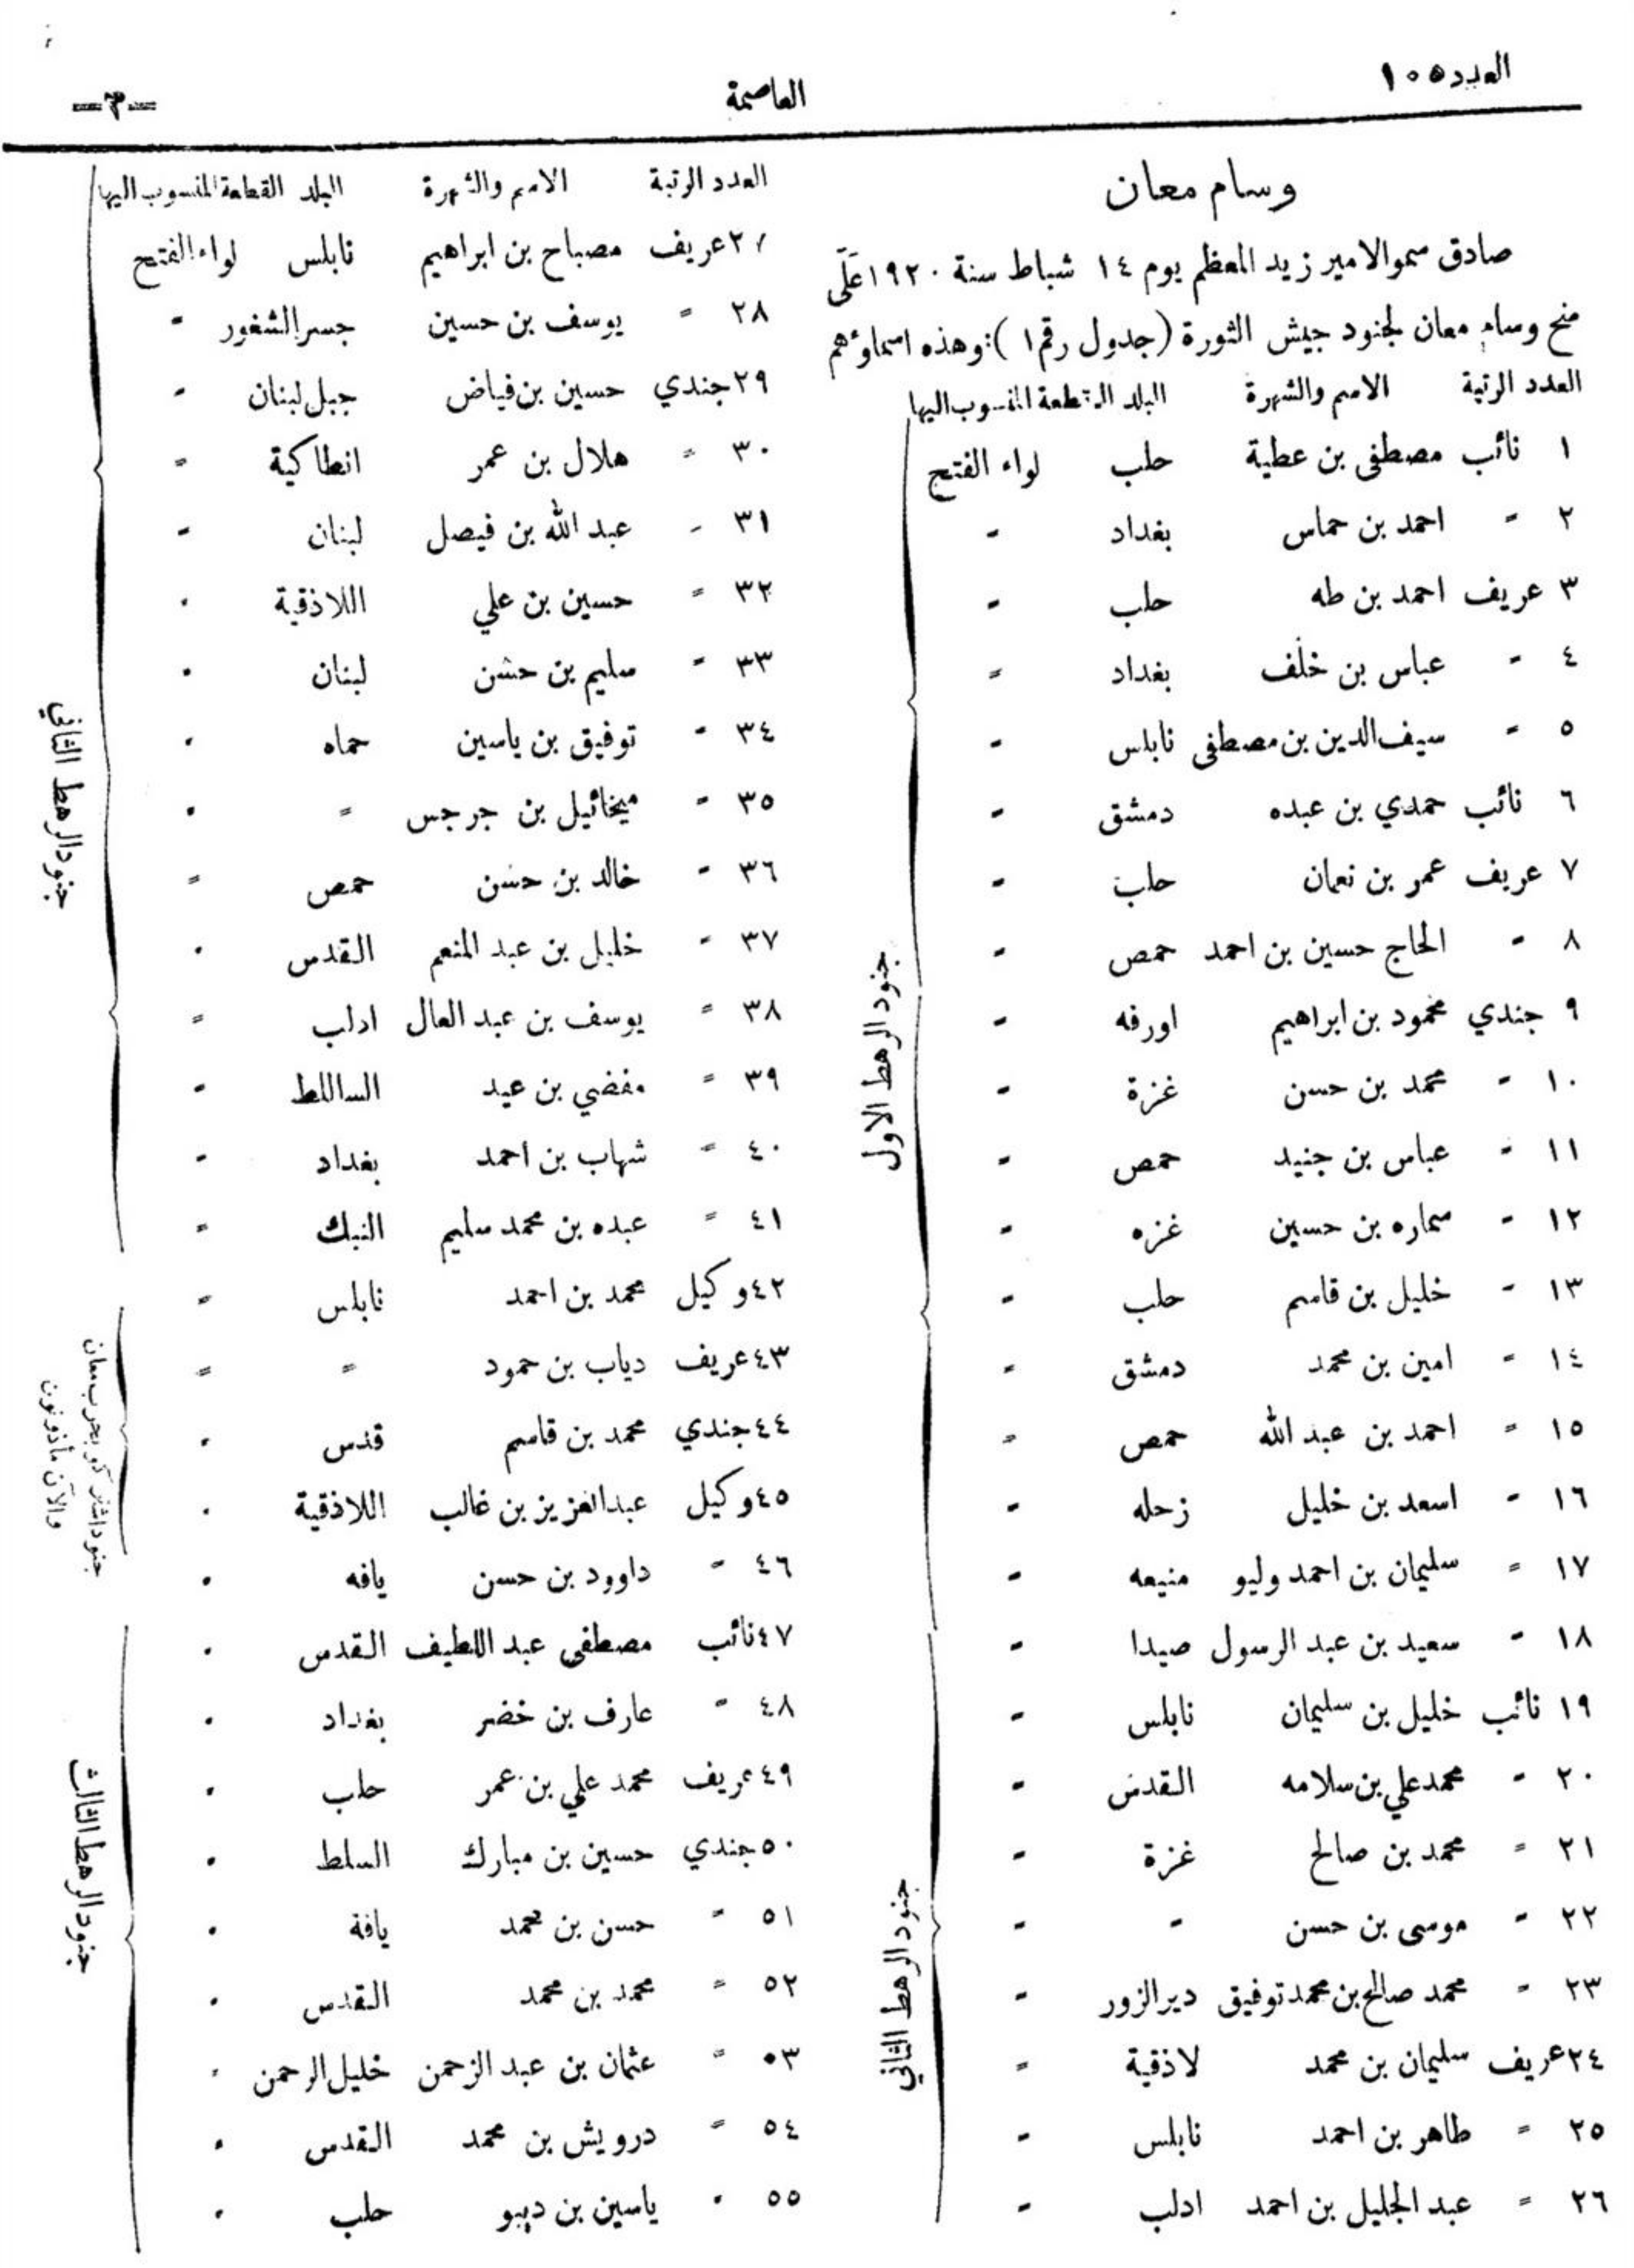 العدد ١٠٥
العاصمة
—٣—
وسام معان
صادق سمو الامير زيد المعظم يوم ١٤ شباط سنة ١٩٢٠ عَلَى
منح وسام معان لجنود جيش الثورة (جدول رقم ١): وهذه اسماؤهم
العدد الرتبة الاسم والشهرة البلد القطعة المنسوب اليها
١ نائب مصطفى بن عطية حلب لواء الفتح
٢ = احمد بن حماس بغداد =
٣ عريف احمد بن طه حلب =
٤ = عباس بن خلف بغداد =
٥ = سيف الدين بن مصطفى نابلس =
٦ نائب حمدي بن عبده دمشق =
٧ عريف عمر بن نعمان حلب =
٨ = الحاج حسين بن احمد حمص =
٩ جندي محمود بن ابراهيم اورفه =
١٠ = محمد بن حسن غزة =
١١ = عباس بن جنيد حمص =
١٢ = سماره بن حسين غزه =
١٣ = خليل بن قاسم حلب =
١٤ = امين بن محمد دمشق =
١٥ = احمد بن عبد الله حمص =
١٦ = اسعد بن خليل زحله =
١٧ = سليمان بن احمد وليو منيعه =
١٨ = سعيد بن عبد الرسول صيدا =
١٩ نائب خليل بن سليمان نابلس =
٢٠ = محمد علي بن سلامه القدس =
٢١ = محمد بن صالح غزة =
٢٢ = موسى بن حسن = =
٢٣ = محمد صالح بن محمد توفيق دير الزور =
٢٤ عريف سليمان بن محمد لاذقية =
٢٥ = طاهر بن احمد نابلس =
٢٦ = عبد الجليل بن احمد ادلب =
جنود الرهط الاول
جنود الرهط الثاني
العدد الرتبة الاسم والشهرة البلد القطعة المنسوب اليها
٢٧ عريف مصباح بن ابراهيم نابلس لواء الفتح
٢٨ = يوسف بن حسين جسر الشغور =
٢٩ جندي حسين بن فياض جبل لبنان =
٣٠ = هلال بن عمر انطاكية =
٣١ = عبد الله بن فيصل لبنان =
٣٢ = حسين بن علي اللاذقية =
٣٣ = سليم بن حسن لبنان =
٣٤ = توفيق بن ياسين حماه =
٣٥ = ميخائيل بن جرجس = =
٣٦ = خالد بن حسن حمص =
٣٧ = خليل بن عبد المنعم القدس =
٣٨ = يوسف بن عبد العال ادلب =
٣٩ = مفضي بن عيد الساللط =
٤٠ = شهاب بن احمد بغداد =
٤١ = عبده بن محمد سليم النبك =
٤٢ وكيل محمد بن احمد نابلس =
٤٣ عريف دياب بن حمود = =
٤٤ جندي محمد بن قاسم قدس =
٤٥ وكيل عبد العزيز بن غالب اللاذقية =
٤٦ = داوود بن حسن يافه =
٤٧ نائب مصطفى عبد اللطيف القدس =
٤٨ = عارف بن خضر بغداد =
٤٩ عريف محمد علي بن عمر حلب =
٥٠ جندي حسين بن مبارك السلط =
٥١ = حسن بن محمد يافة =
٥٢ = محمد بن محمد القدس =
٥٣ = عثمان بن عبد الرحمن خليل الرحمن =
٥٤ = درويش بن محمد القدس =
٥٥ = ياسين بن ديبو حلب =
جنود الرهط الثاني
جنود اشتركو بحرب معان
والآن مأذونون
جنود الرهط الثالث